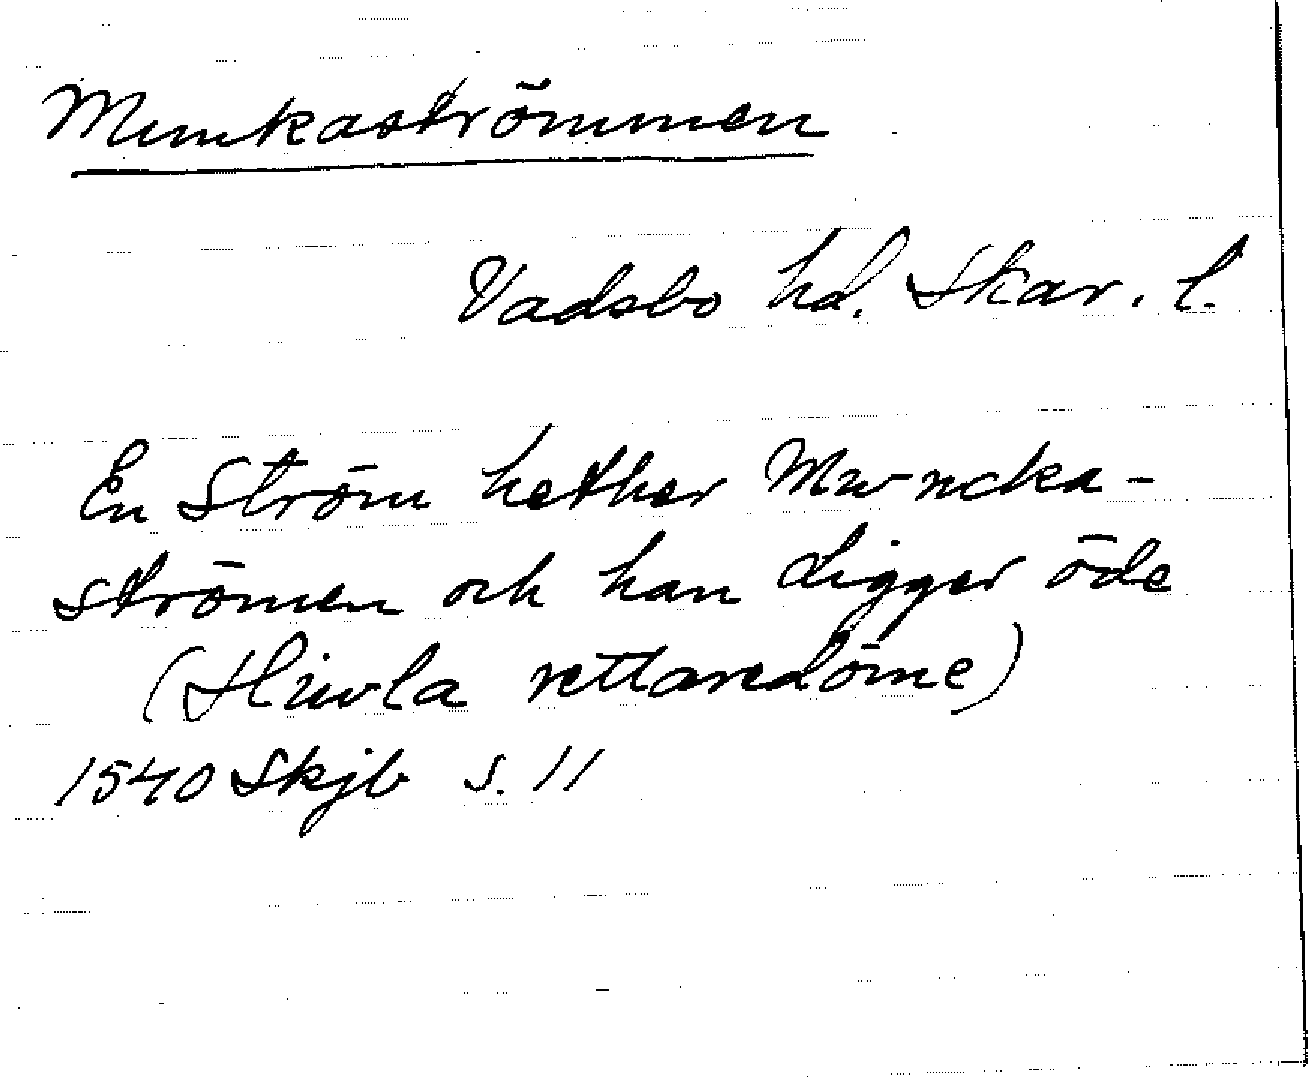 Munkaströmmen
Vadsbo hd. Skar. l.
En Ström hether Mwncka-
strömen och han Ligger öde
(Hiwla rettaredöme)
1540 Skjb s. 11